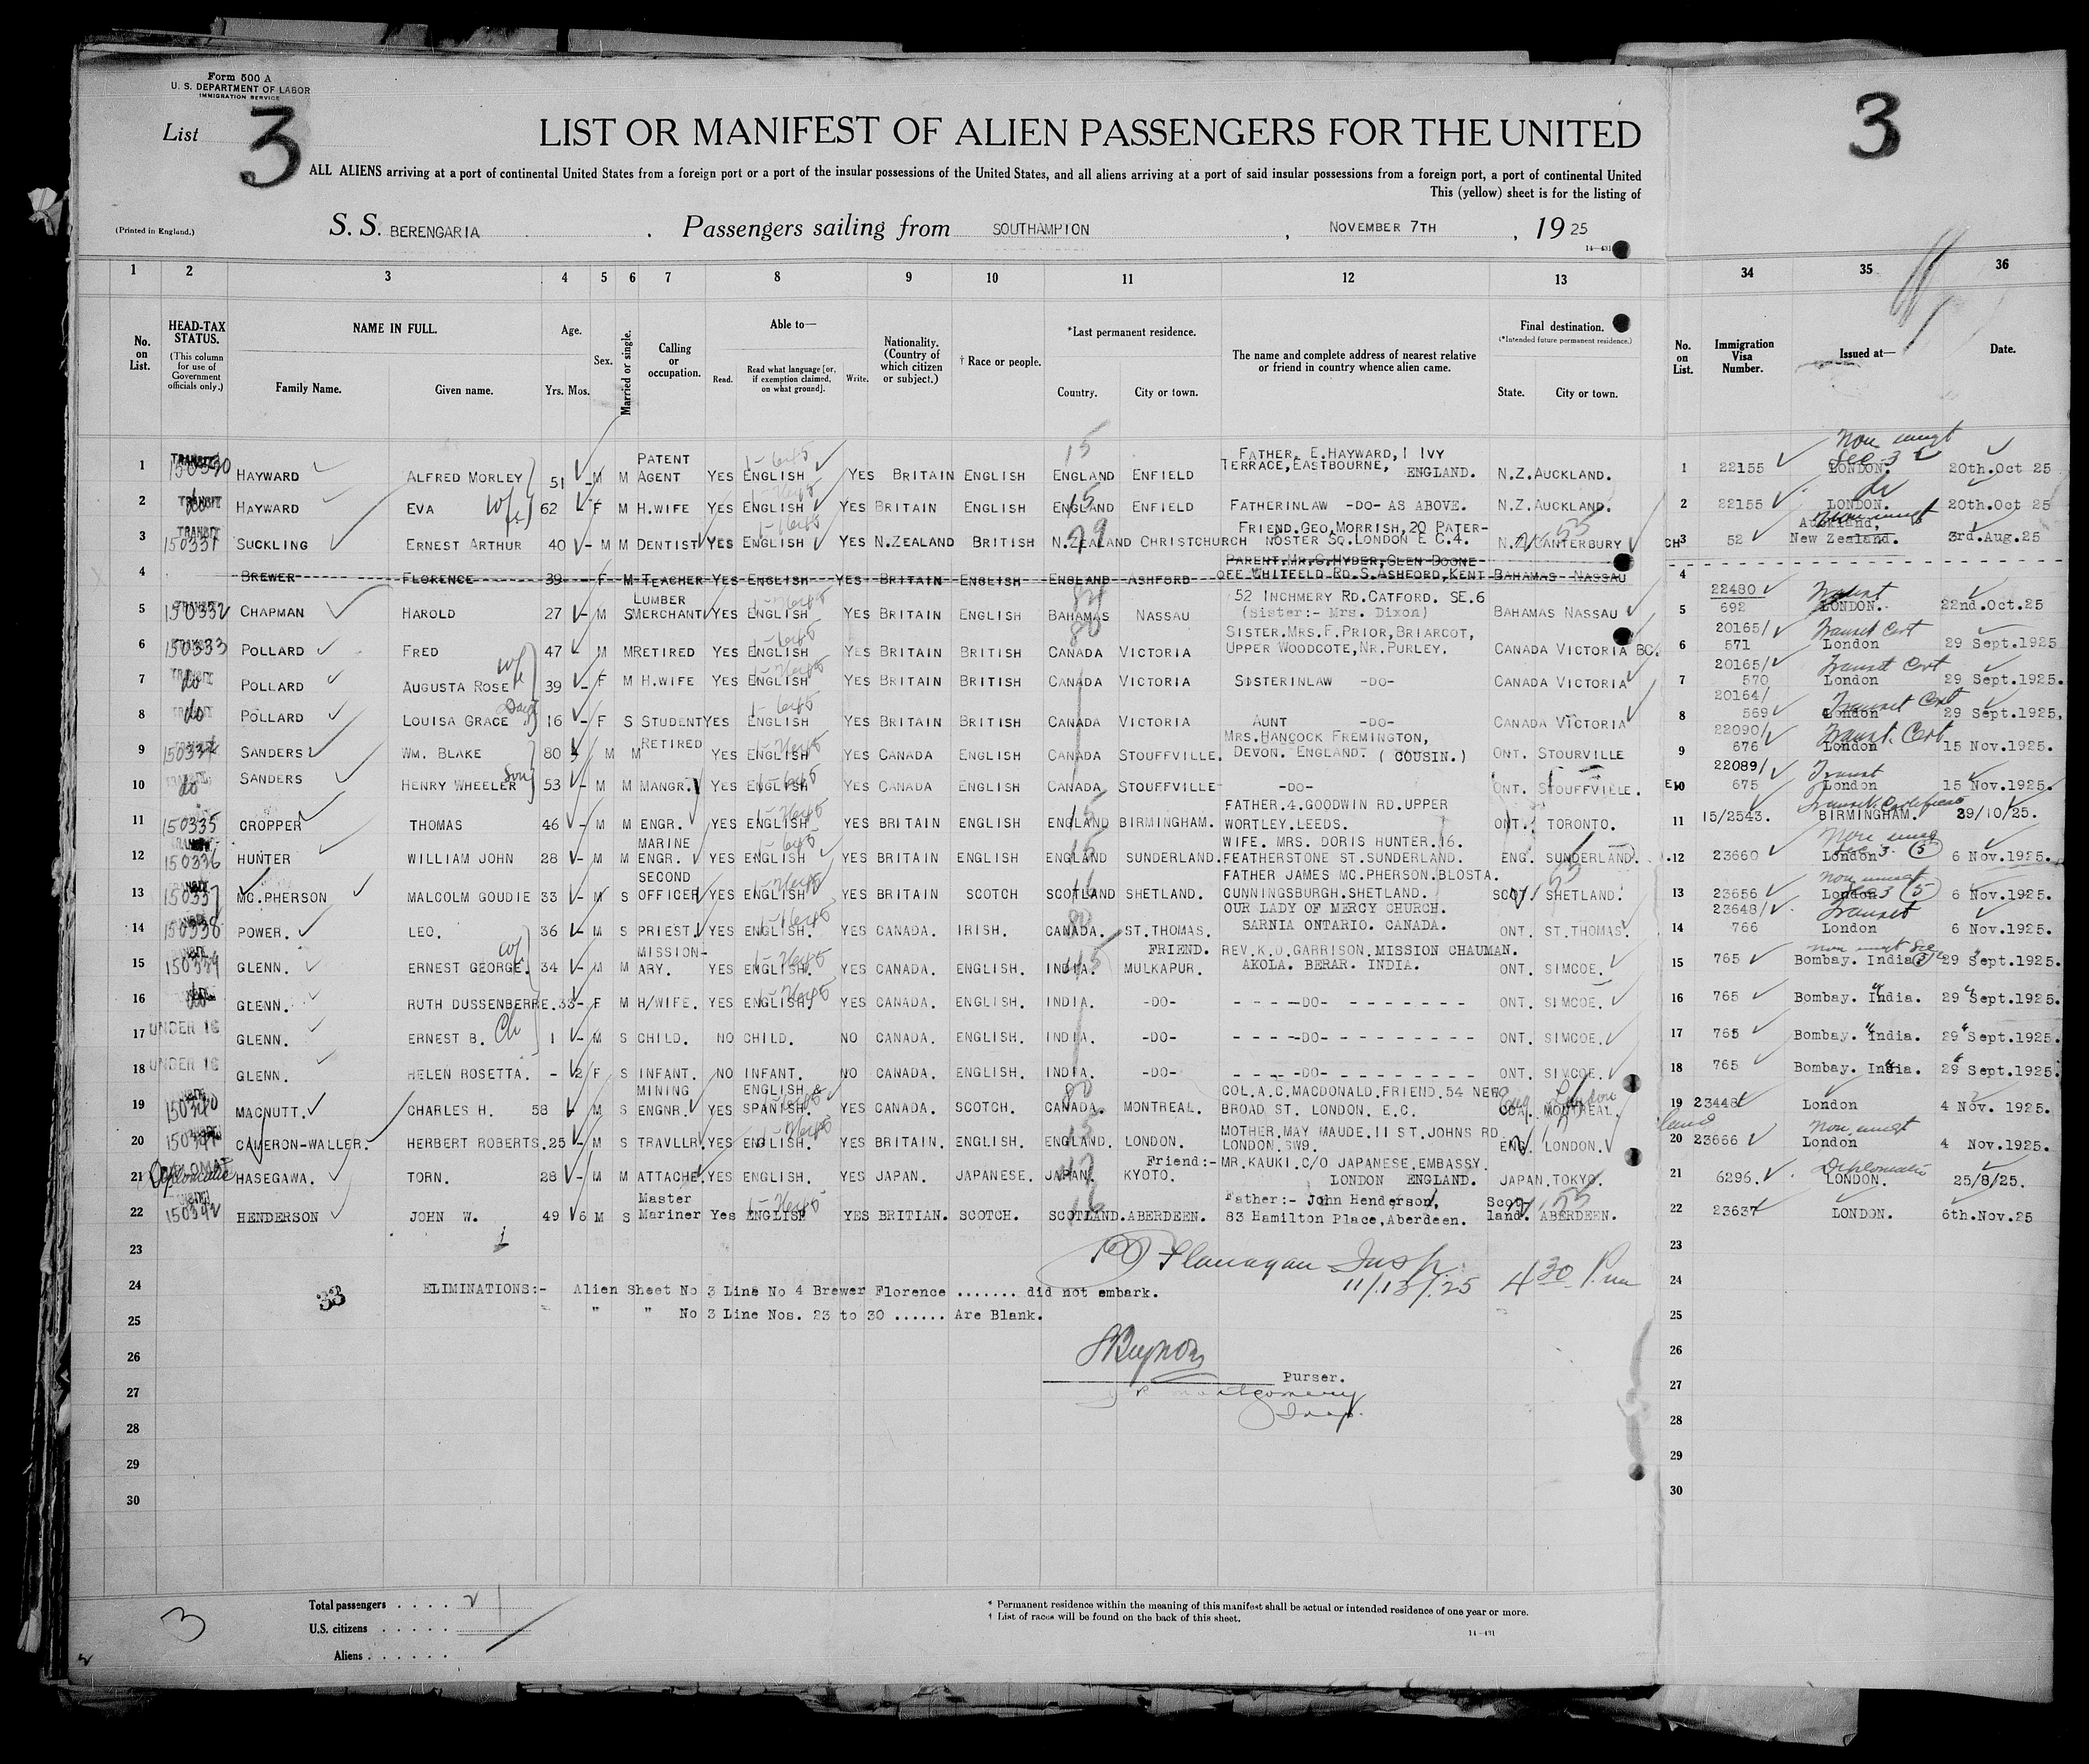 Form 500 A
U. S. DEPARTMENT OF LABOR
IMMIGRATION SERVICE
List 3
3
LIST OR MANIFEST OF ALIEN PASSENGERS FOR THE UNITED
ALL ALIENS arriving at a port of continental United States from a foreign port or a port of the insular possessions of the United States, and all aliens arriving at a port of said insular possessions from a foreign port, a port of continental United
This (yellow) sheet is for the listing of
(Printed in England.)
S. S. BERENGARIA . Passengers sailing from SOUTHAMPTON , NOVEMBER 7TH , 19 25
14-431
1 2 3 4 5 6 7 8 9 10 11 12 13 34 35 36
No. on List.
HEAD-TAX STATUS.
(This column for use of Government officials only.)
NAME IN FULL.
Family Name. Given name.
Age.
Yrs. Mos.
Sex.
Married or single.
Calling or occupation.
Able to—
Read. Read what language [or, if exemption claimed, on what ground]. Write.
Nationality. (Country of which citizen or subject.)
† Race or people.
*Last permanent residence.
Country. City or town.
The name and complete address of nearest relative or friend in country whence alien came.
Final destination.
(*Intended future permanent residence.)
State. City or town.
No. on List.
Immigration Visa Number.
Issued at—
Date.
1 TRANSIT 150330 HAYWARD ALFRED MORLEY 51 - M M PATENT AGENT YES ENGLISH YES BRITAIN ENGLISH ENGLAND ENFIELD FATHER. E.HAYWARD,1 IVY TERRACE,EASTBOURNE, ENGLAND. N.Z.AUCKLAND. 1 22155 Non immgt Sec 3 LONDON. 20th.Oct 25
2 TRANSIT do HAYWARD EVA wf 62 F M H.WIFE YES ENGLISH YES BRITAIN ENGLISH ENGLAND ENFIELD FATHERINLAW -DO- AS ABOVE. N.Z.AUCKLAND. 2 22155 LONDON. 20th.Oct 25
3 TRANSIT 150331 SUCKLING ERNEST ARTHUR 40 - M M DENTIST YES ENGLISH YES N.ZEALAND BRITISH N.ZEALAND CHRISTCHURCH FRIEND.GEO.MORRISH,20 PATER-NOSTER SQ.LONDON E C.4. N.Z CANTERBURY CH 3 52 Auckland, New Zealand. 3rd.Aug.25
4 BREWER FLORENCE 39 F M TEACHER YES ENGLISH YES BRITAIN ENGLISH ENGLAND ASHFORD PARENT.MR.G.HYDER,GLEN DOONE OFF WHITFELD RD.S.ASHFORD,KENT BAHAMAS NASSAU 4
5 TRANSIT 150332 CHAPMAN HAROLD 27 - M S LUMBER MERCHANT YES ENGLISH YES BRITAIN ENGLISH BAHAMAS NASSAU 52 INCHMERY RD.CATFORD. SE.6 (Sister:- Mrs. Dixon) BAHAMAS NASSAU 5 22480 692 Transit LONDON. 22nd.Oct.25
6 150333 POLLARD FRED 47 M M RETIRED YES ENGLISH YES BRITAIN BRITISH CANADA VICTORIA SISTER.MRS.F.PRIOR,BRIARCOT, UPPER WOODCOTE,NR.PURLEY. CANADA VICTORIA BC. 6 20165/ 571 Transit Cert London 29 Sept.1925
7 do POLLARD AUGUSTA ROSE wf 39 - F M H.WIFE YES ENGLISH YES BRITAIN BRITISH CANADA VICTORIA SISTERINLAW -DO- CANADA VICTORIA 7 20165/ 570 Transit Cert London 29 Sept.1925.
8 do POLLARD LOUISA GRACE Daug 16 - F S STUDENT YES ENGLISH YES BRITAIN BRITISH CANADA VICTORIA AUNT -DO- CANADA VICTORIA 8 20164/ 569 Transit Cert London 29 Sept.1925,
9 150334 SANDERS WM. BLAKE 80 M M RETIRED YES ENGLISH YES CANADA ENGLISH CANADA STOUFFVILLE. MRS.HANCOCK FREMINGTON, DEVON. ENGLAND. ( COUSIN.) ONT. STOURVILLE 9 22090/ 676 Transit Cert London 15 Nov.1925.
10 do SANDERS HENRY WHEELER Son 53 - M M MANGR. YES ENGLISH YES CANADA ENGLISH CANADA STOUFFVILLE -DO- ONT. STOUFFVILLE. E 10 22089/ 675 Transit London 15 Nov.1925.
11 150335 CROPPER THOMAS 46 - M M ENGR. YES ENGLISH YES BRITAIN ENGLISH ENGLAND BIRMINGHAM. FATHER.4.GOODWIN RD.UPPER WORTLEY.LEEDS. ONT. TORONTO. 11 15/2543. Transit Certificate BIRMINGHAM. 29/10/25.
12 150336 HUNTER WILLIAM JOHN 28 - M M MARINE ENGR. YES ENGLISH YES BRITAIN ENGLISH ENGLAND SUNDERLAND. WIFE. MRS. DORIS HUNTER.16. FEATHERSTONE ST.SUNDERLAND. ENG. SUNDERLAND. 12 23660 Non immg Sec 3 (5) London 6 Nov.1925.
13 150337 MC.PHERSON MALCOLM GOUDIE 33 - M S SECOND OFFICER YES ENGLISH YES BRITAIN SCOTCH SCOTLAND SHETLAND. FATHER JAMES MC.PHERSON.BLOSTA. CUNNINGSBURGH.SHETLAND. SCOT. SHETLAND. 13 23656 Non immgt Sec 3 (5) London 6 Nov.1925.
14 150338 POWER. LEO. 36 - M S PRIEST. YES ENGLISH. YES CANADA. IRISH. CANADA. ST.THOMAS. OUR LADY OF MERCY CHURCH. SARNIA ONTARIO. CANADA. ONT. ST.THOMAS. 14 23648/ 766 Transit London 6 Nov.1925.
15 150339 GLENN. ERNEST GEORGE. wf 34 - M M MISSION-ARY. YES ENGLISH. YES CANADA. ENGLISH. INDIA. MULKAPUR. FRIEND. REV.K.D.GARRISON.MISSION CHAUMAN. AKOLA. BERAR. INDIA. ONT. SIMCOE. 15 765 Bombay. India 29 Sept.1925.
16 do GLENN. RUTH DUSSENBERRE. 33 - F M H/WIFE. YES ENGLISH. YES CANADA. ENGLISH. INDIA. -DO- -DO- ONT. SIMCOE. 16 765 Bombay. India. 29 Sept.1925.
17 UNDER 16 GLENN. ERNEST B. Ch 1 - M S CHILD. NO CHILD. NO CANADA. ENGLISH. INDIA. -DO- -DO- ONT. SIMCOE. 17 765 Bombay. India. 29 Sept.1925.
18 UNDER 16 GLENN. HELEN ROSETTA. - 2 F S INFANT. NO INFANT. NO CANADA. ENGLISH. INDIA. -DO- -DO- ONT. SIMCOE. 18 765 Bombay. India. 29 Sept.1925.
19 150340 MACNUTT. CHARLES H. 58 M S MINING ENGNR. YES ENGLISH & SPANISH. YES CANADA. SCOTCH. CANADA. MONTREAL. COL.A.C.MACDONALD.FRIEND.54 NEW BROAD ST. LONDON. E.C. MONTREAL. Eng London 19 23448 London 4 Nov. 1925.
20 150341 CAMERON-WALLER. HERBERT ROBERTS. 25 - M S TRAVLLR. YES ENGLISH. YES BRITAIN. ENGLISH. ENGLAND. LONDON. MOTHER.MAY MAUDE.11 ST.JOHNS RD. LONDON.SW9. ENG. LONDON. 20 23666 Non immgt London 4 Nov.1925.
21 DIPLOMAT Diplomatic HASEGAWA. TORN. 28 - M M ATTACHE. YES ENGLISH. YES JAPAN. JAPANESE. JAPAN. KYOTO. Friend:- MR.KAUKI.C/O JAPANESE.EMBASSY. LONDON ENGLAND. JAPAN.TOKYO. 21 6296. Diplomatic LONDON. 25/8/25.
22 150342 HENDERSON JOHN W. 49 6 M S Master Mariner Yes ENGLISH YES BRITIAN. SCOTCH. SCOTLAND. ABERDEEN. Father:- John Henderson, 83 Hamilton Place,Aberdeen. Scot-land. ABERDEEN. 22 23637 LONDON. 6th.Nov.25
23 23
Flanagan Insp.
24 33 ELIMINATIONS:- Alien Sheet No 3 Line No 4 Brewer Florence ....... did not embark. 11/13/25 4 30 P.m 24
25 " " No 3 Line Nos. 23 to 30 ...... Are Blank. 25
26 26
Purser.
27 Montgomery 27
Insp.
28 28
29 29
30 30
3
Total passengers . . . . 21
U.S. citizens . . . . .
Aliens . . . . . .
* Permanent residence within the meaning of this manifest shall be actual or intended residence of one year or more.
† List of races will be found on the back of this sheet.
14-431